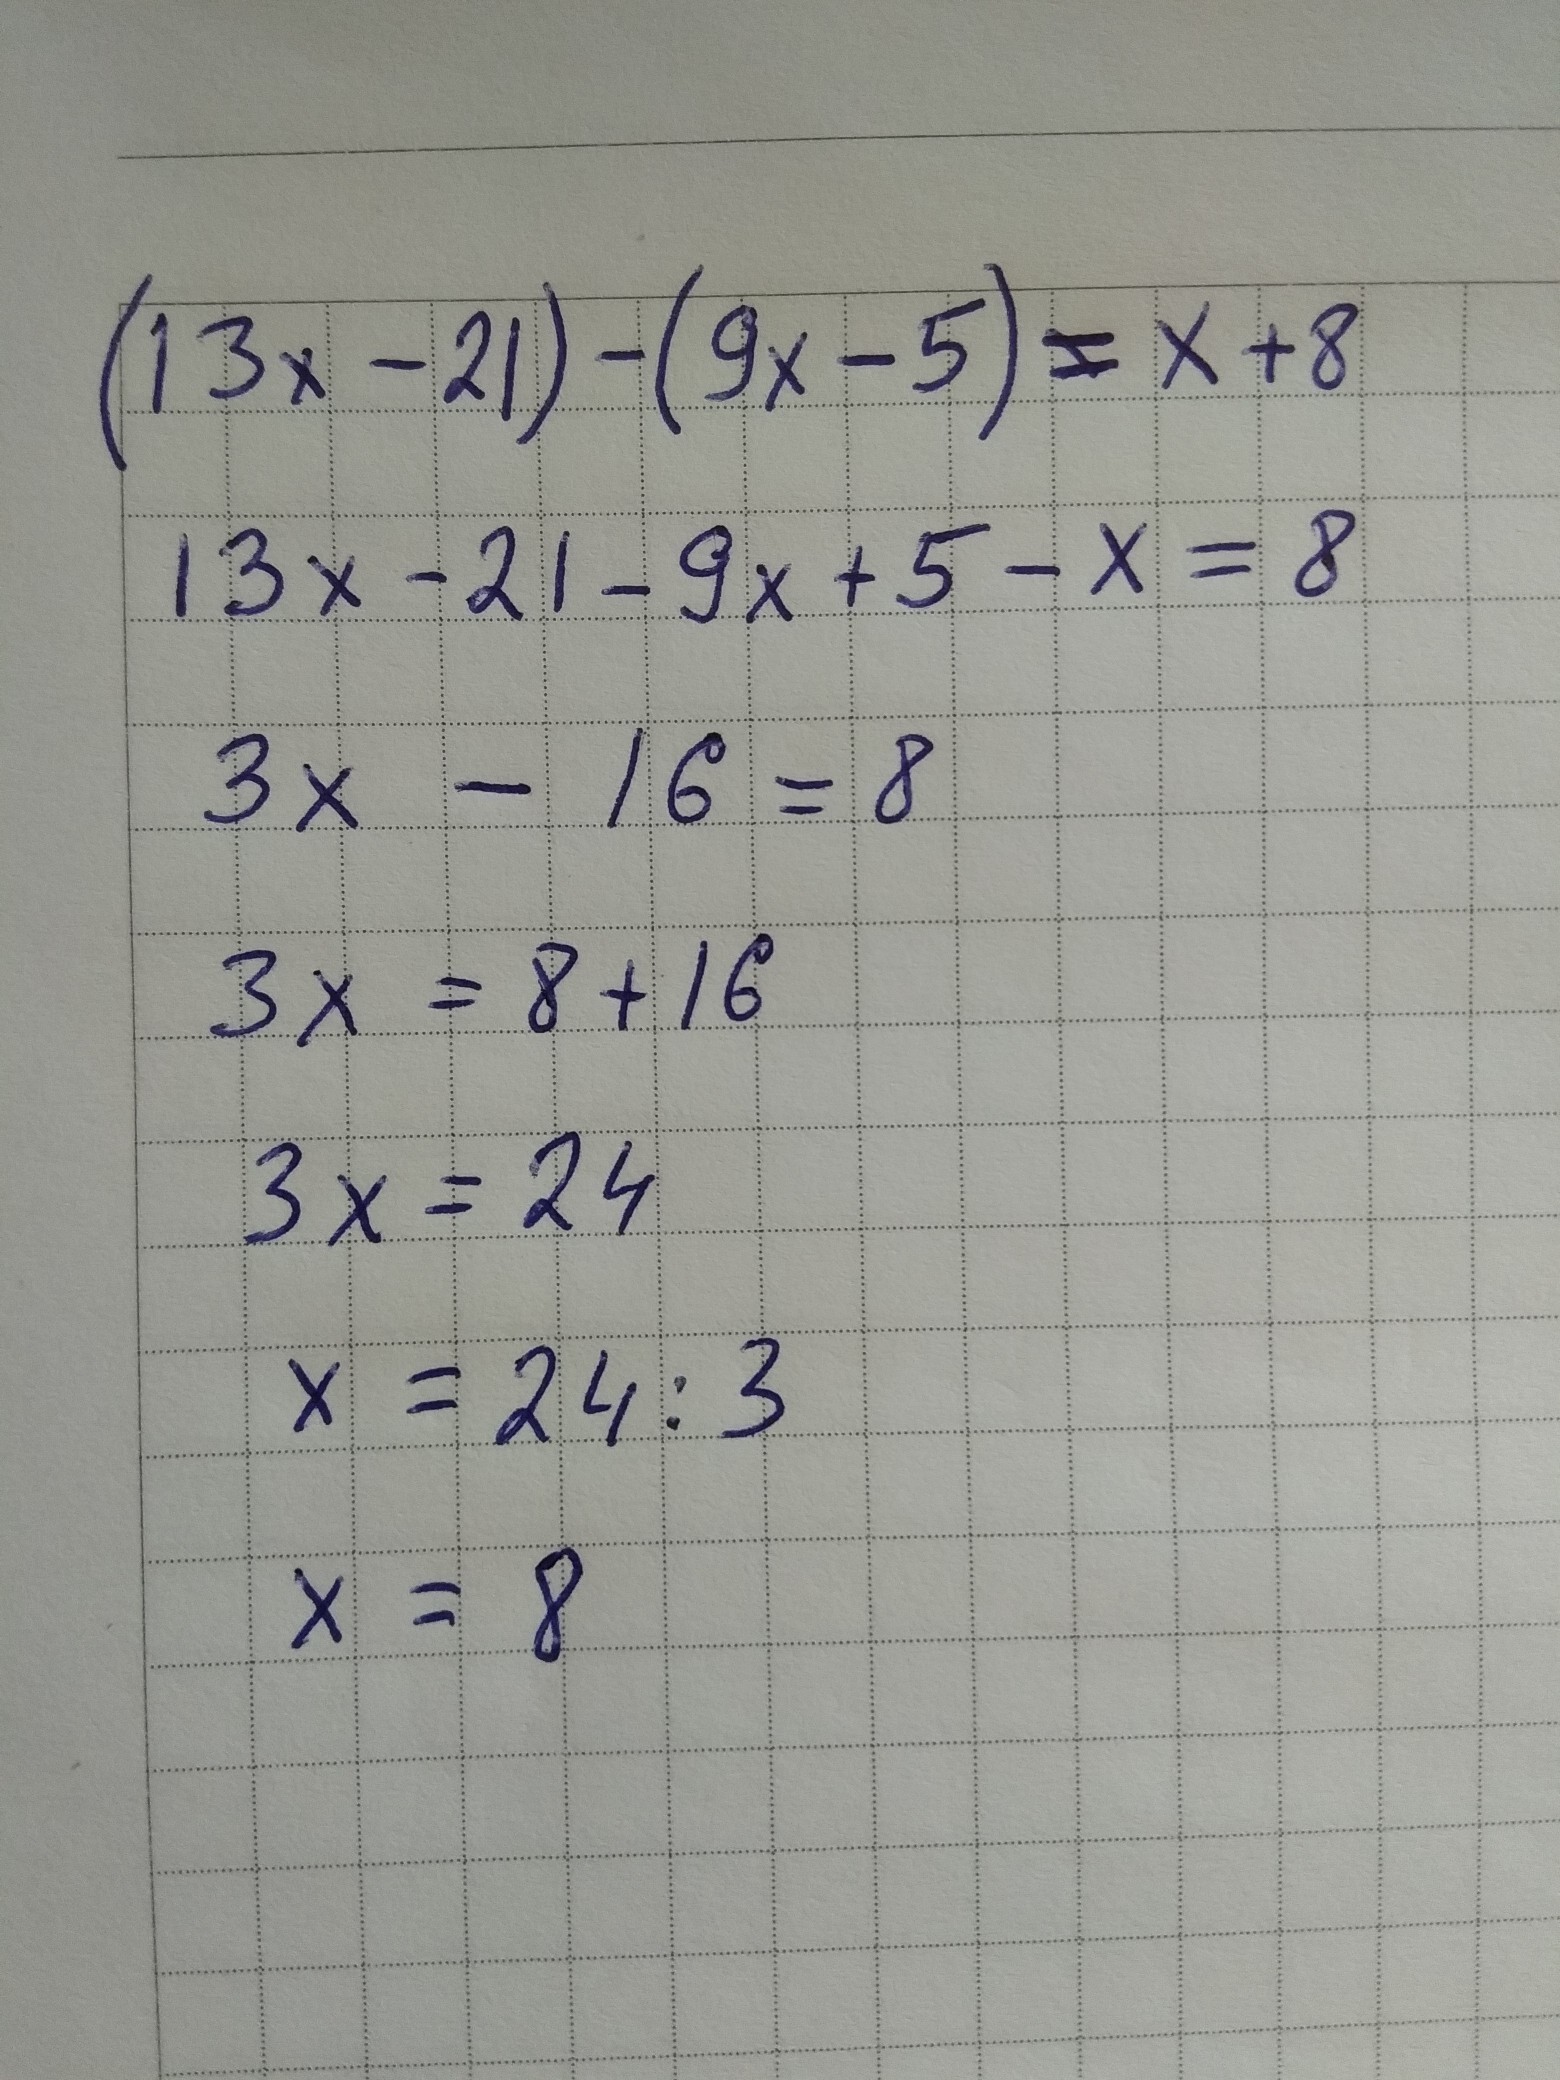 (13x - 21) - (9x - 5) = x + 8
13x - 21 - 9x + 5 - x = 8
3x - 16 = 8
3x = 8 + 16
3x = 24
x = 24 : 3
x = 8